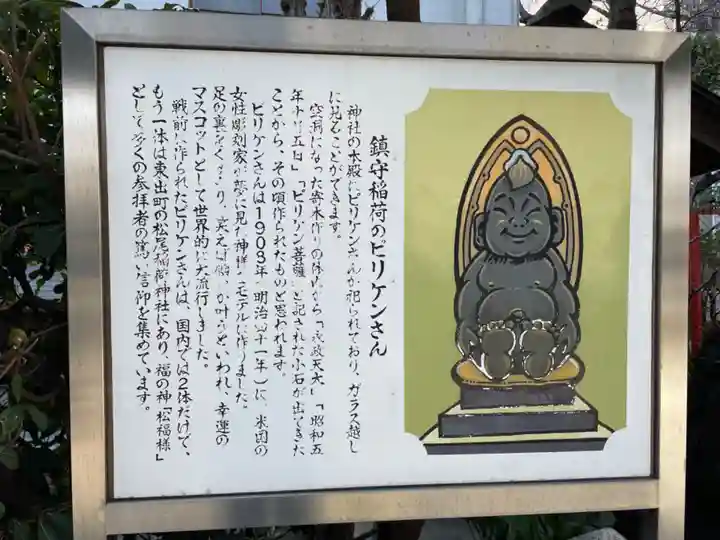 鎮守稲荷のビリケンさん
神社の本殿にビリケンさんが祀られており、ガラス越し
に見ることができます。
空洞になった寄木作りの体内から「 」「昭和五
年十 五日」「ビリケン菩薩」と記された小石が出てきた
ことから、その頃作られたものと思われます。
ビリケンさんは1908年(明治四十一年)に、米国の
女性彫刻家が夢に見た神様をモデルに作りました。
足の裏をくすぐり、笑えば願いが叶うといわれ、幸運の
マスコットとして世界的に大流行しました。
戦前に作られたビリケンさんは、国内では2体だけで、
もう一体は東出町の松尾稲荷神社にあり、福の神「松福様」
として多くの参拝者の篤い信仰を集めています。